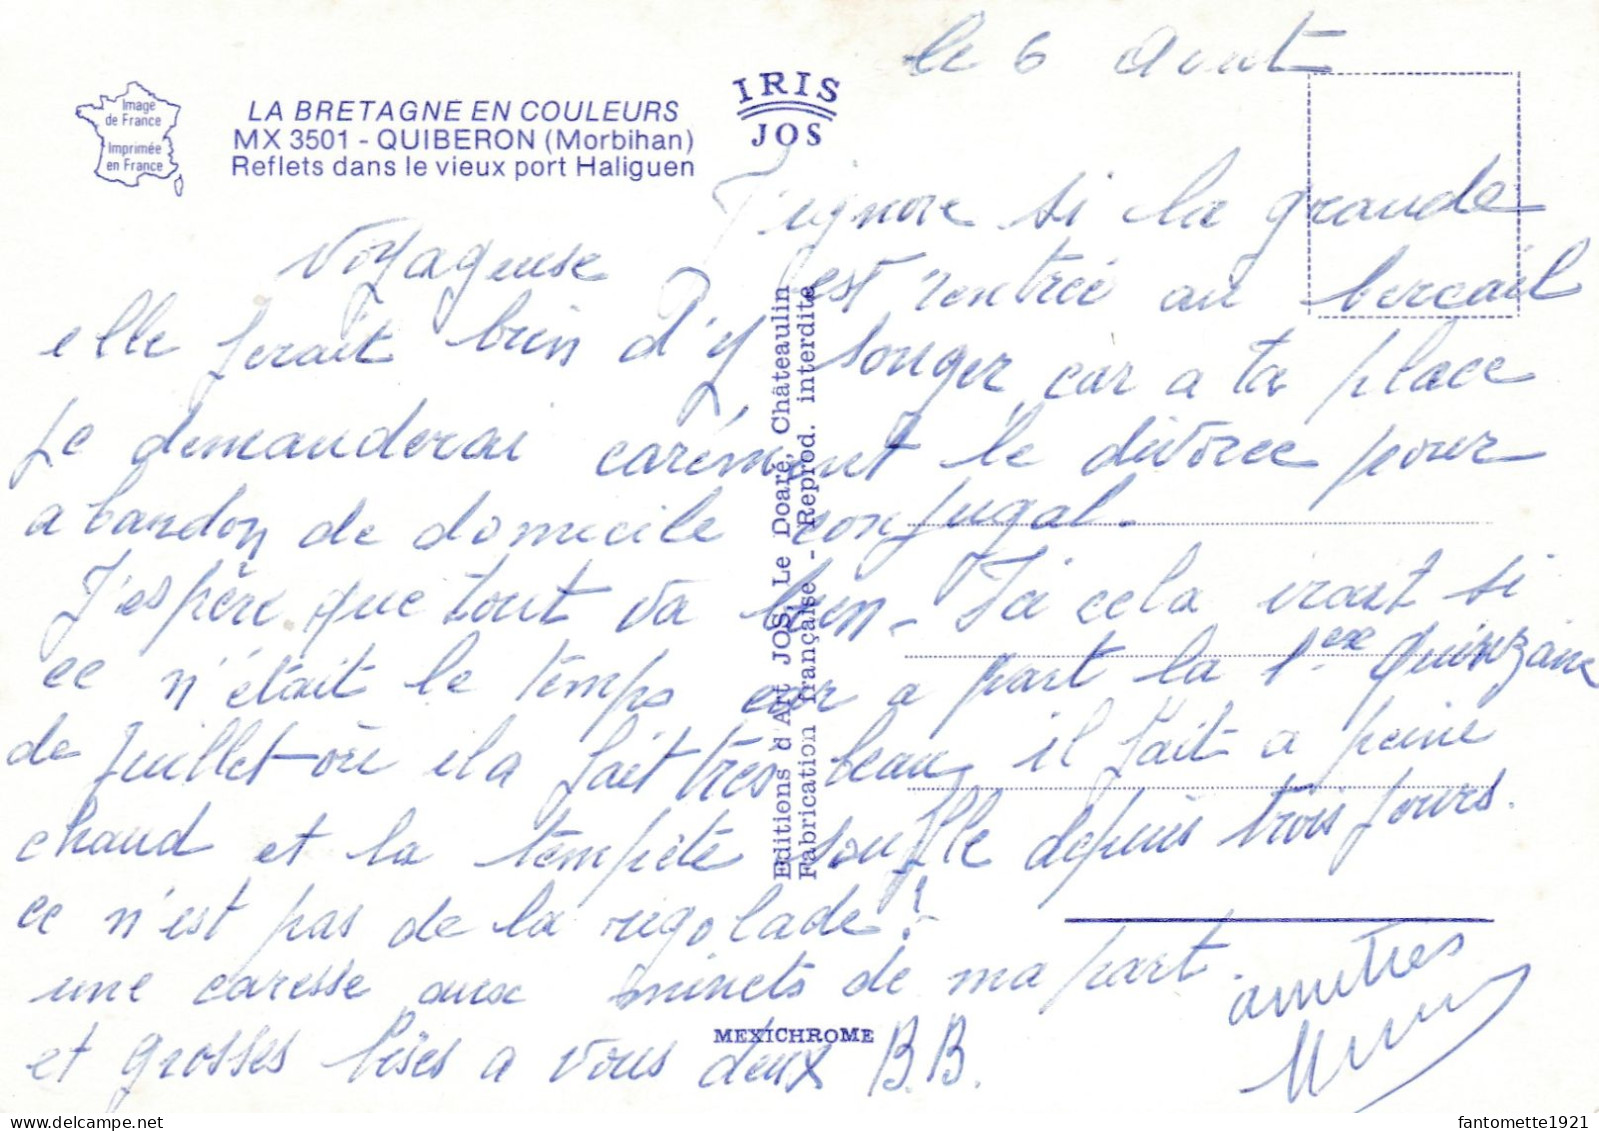 le 6 Aout
Image
de France
Imprimée
en France
LA BRETAGNE EN COULEURS
MX 3501 - QUIBERON (Morbihan)
Reflets dans le vieux port Haliguen
IRIS
JOS
J'ignore si la grande
voyageuse est rentrée au bercail
elle ferait bien d'y songer car a ta place
je demanderai carément le divorce pour
abandon de domicile conjugal.
J'espère que tout va bien - Ici cela irait si
ce n'était le temps car a part la 1ere quinzaine
de Juillet où il a fait très beau, il fait a peine
chaud et la tempête souffle depuis trois jours.
ce n'est pas de la rigolade!
une caresse aux minets de ma part.
et grosses bises a vous deux B.B.
amitiés
Editions d'Art JOS Le Doaré, Châteaulin
Fabrication française - Reprod. interdite
MEXICHROME
fantomette1921